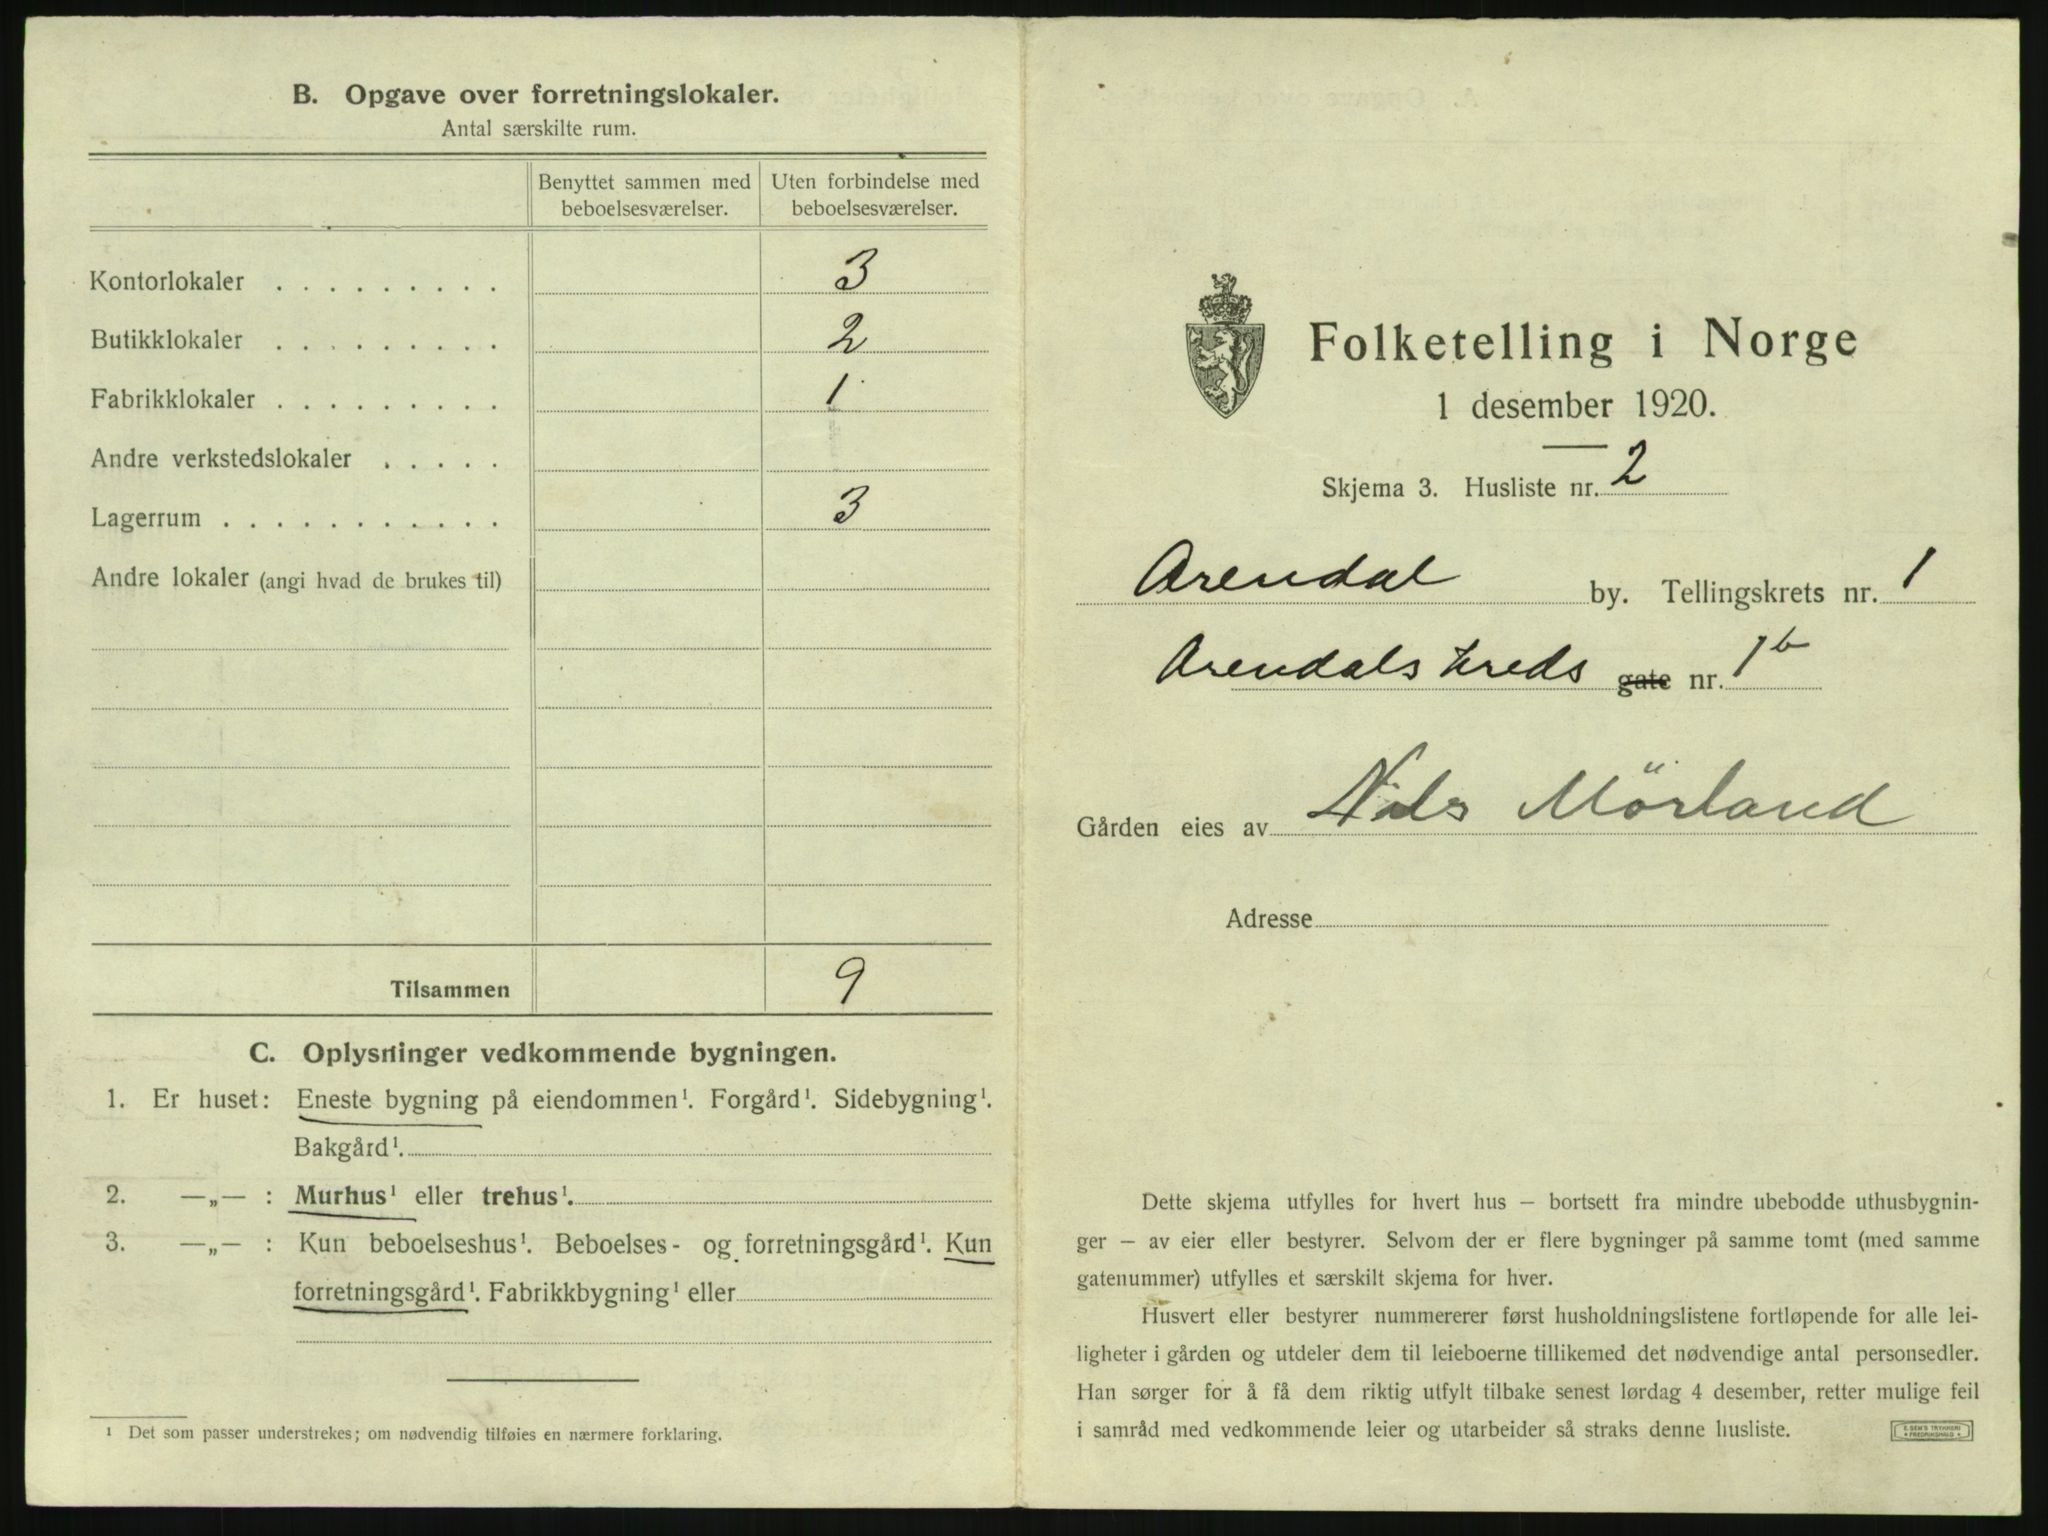 B. Opgave over forretningslokaler.
Antal særskilte rum.
Benyttet sammen med beboelsesværelser.
Uten forbindelse med beboelsesværelser.
Kontorlokaler . . . . . . . . . 3
Butikklokaler . . . . . . . . . 2
Fabrikklokaler . . . . . . . . . 1
Andre verkstedslokaler . . . . .
Lagerrum . . . . . . . . . . . 3
Andre lokaler (angi hvad de brukes til)
Tilsammen 9
C. Oplysninger vedkommende bygningen.
1. Er huset: Eneste bygning på eiendommen¹. Forgård¹. Sidebygning¹.
Bakgård¹.
2. —„— : Murhus¹ eller trehus¹.
3. —„— : Kun beboelseshus¹. Beboelses- og forretningsgård¹. Kun
forretningsgård¹. Fabrikkbygning¹ eller
¹ Det som passer understrekes; om nødvendig tilføies en nærmere forklaring.
Folketelling i Norge
1 desember 1920.
Skjema 3. Husliste nr. 2
Arendal by. Tellingskrets nr. 1
Arendals kreds gate nr. 1b
Gården eies av Nils Mörland
Adresse
Dette skjema utfylles for hvert hus — bortsett fra mindre ubebodde uthusbygnin-
ger — av eier eller bestyrer. Selvom der er flere bygninger på samme tomt (med samme
gatenummer) utfylles et særskilt skjema for hver.
Husvert eller bestyrer nummererer først husholdningslistene fortløpende for alle lei-
ligheter i gården og utdeler dem til leieboerne tillikemed det nødvendige antal personsedler.
Han sørger for å få dem riktig utfylt tilbake senest lørdag 4 desember, retter mulige feil
i samråd med vedkommende leier og utarbeider så straks denne husliste.
E. SEM'S TRYKKERI
FREDRIKSHALD